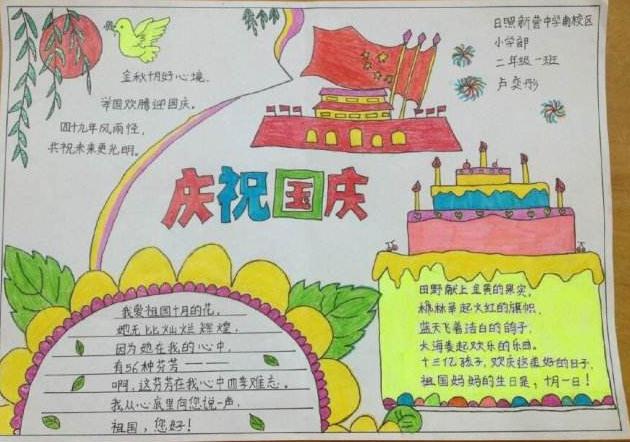 金秋十月好心境,
举国欢腾迎国庆。
四十九年风雨径,
共祝未来更光明。
日照新营中学南校区
小学部
二年级一班
卢奕彤
庆祝国庆
我爱祖国十月的花,
她无比灿烂辉煌,
因为她在我的心中,
有56种芬芳——
啊,这芬芳在我心中四季难忘。
我从心底里向您说一声,
祖国,您好!
田野献上金黄的果实,
枫林举起火红的旗帜,
蓝天飞着洁白的鸽子,
大海奏起欢乐的乐曲。
十三亿孩子,欢庆这美好的日子,
祖国妈妈的生日是,十月一日!